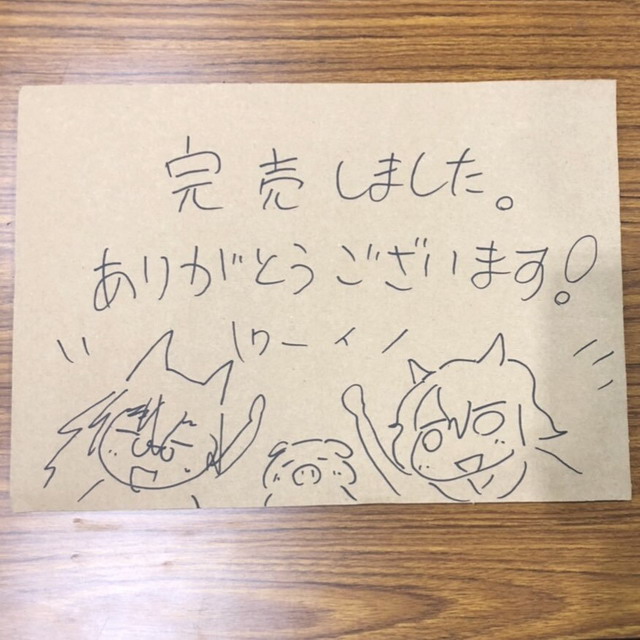 完売しました。
ありがとうございます!
\ワーイ/